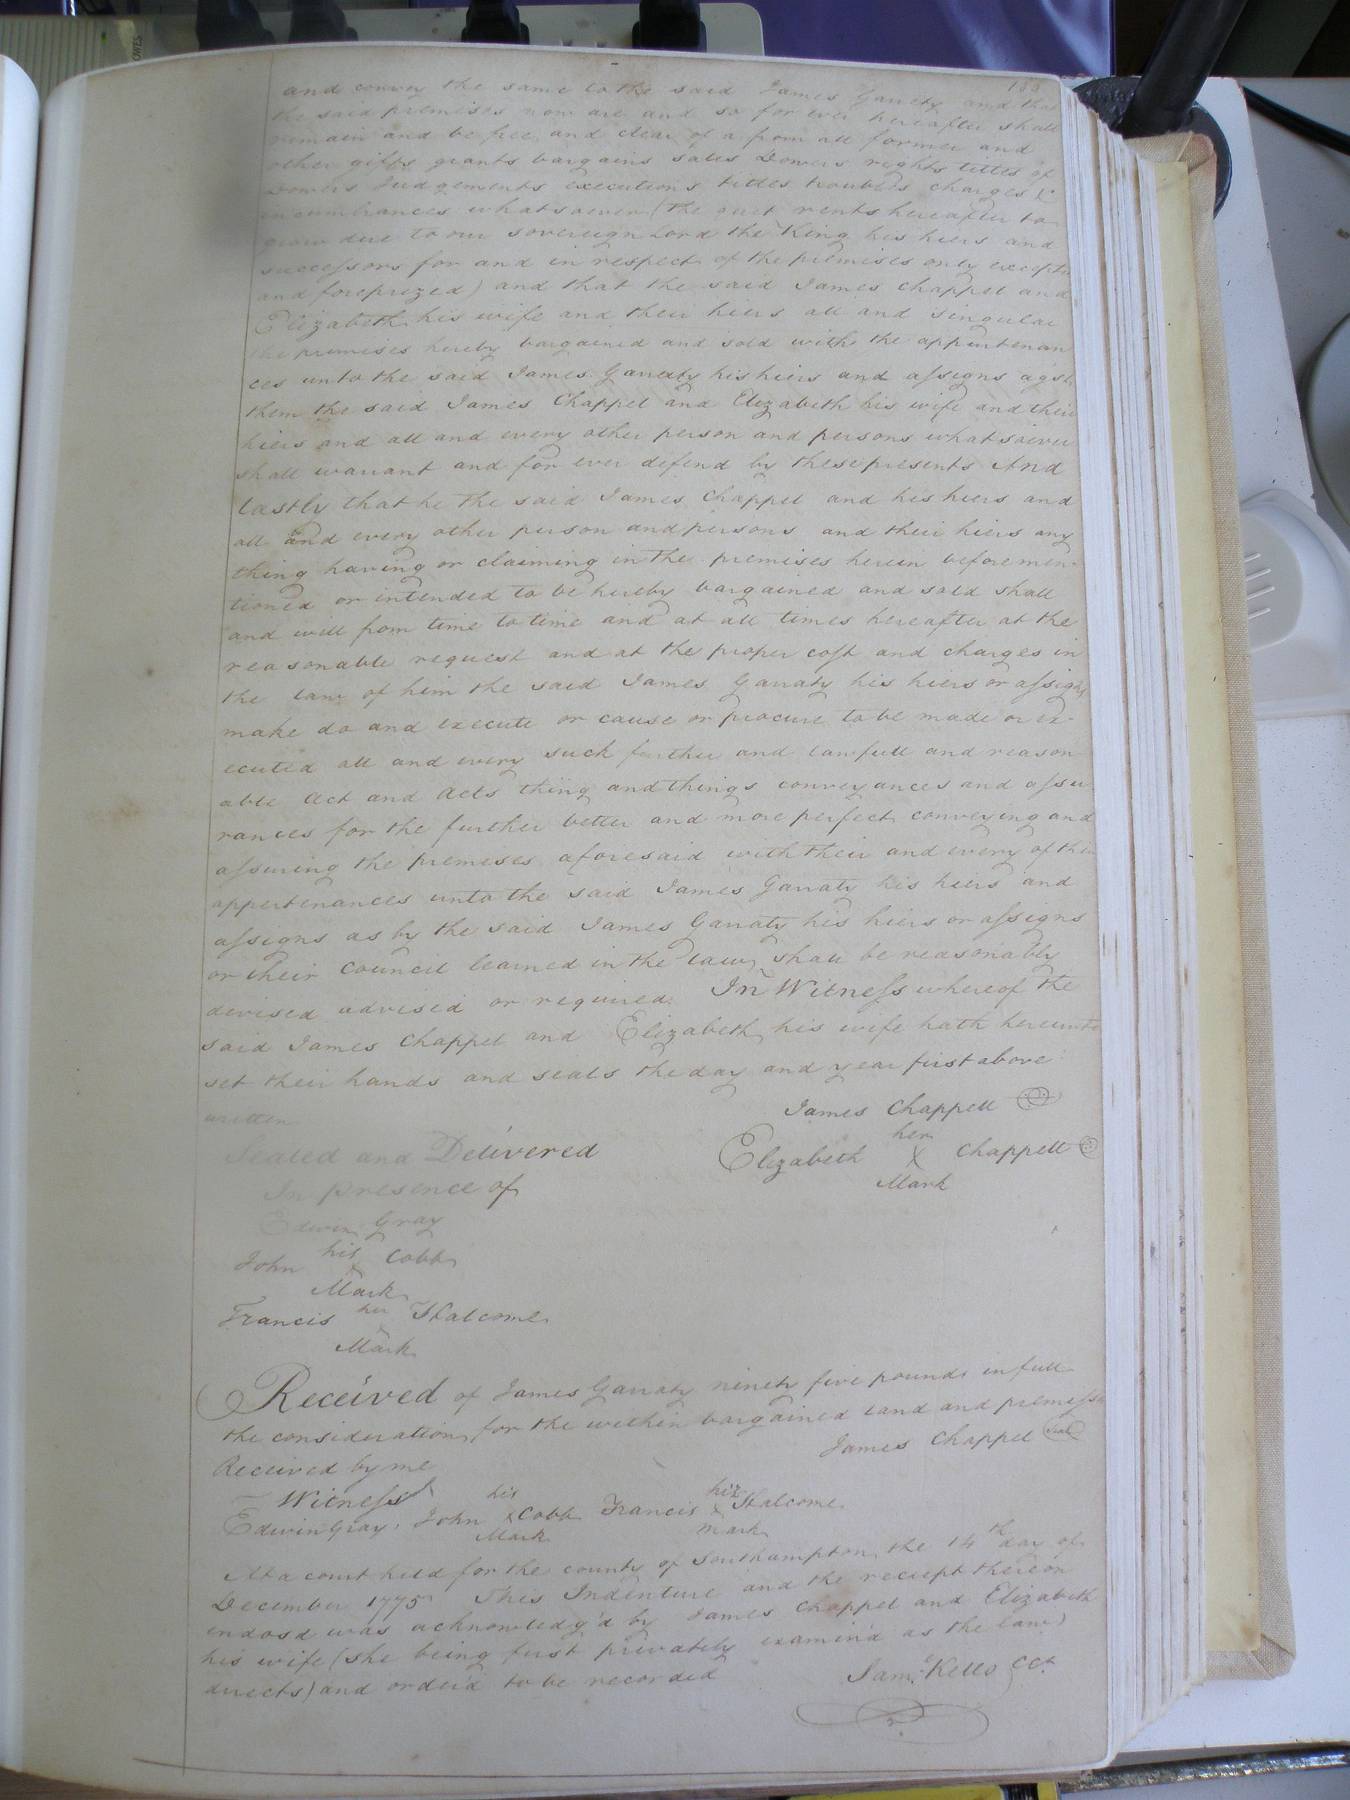 and convey the same to the said James Garraty and that
the said premises now are and so for ever hereafter shall
remain and be free and clear of a from all former and
other gifts grants bargains sales Dowers rights titles of
Dowers Judgements executions titles troubles charges &
incumbrances whatsoever (the quit rents hereafter to
grow due to our sovereign Lord the King his hiers and
successors for and in respect of the premises only except
and foreprized) and that the said James Chappel and
Elizabeth his wife and their hiers all and singular
the premises hereby bargained and sold with the appurtenan
ces unto the said James Garraty his hiers and assigns agst
them the said James Chappel and Elizabeth his wife and their
hiers and all and every other person and persons whatsoever
shall warrant and for ever defend by these presents And
lastly that he the said James Chappel and his hiers and
all and every other person and persons and their hiers any
thing having or claiming in the premises herein beforemen-
tioned or intended to be hereby bargained and sold shall
and will from time to time and at all times hereafter at the
reasonable request and at the proper cost and charges in
the law of him the said James Garraty his hiers or assigns
make do and execute or cause or procure to be made or ex-
ecuted all and every such further and lawfull and reason
able Act and Acts thing and things conveyances and assu
rances for the further better and more perfect conveying and
assuring the premeses aforesaid with their and every of their
appertenances unto the said James Garraty his hiers and
assigns as by the said James Garraty his hiers or assigns
or their Council learned in the law shall be reasonably
devised advised or required. In Witness whereof the
said James Chappel and Elizabeth his wife hath hereunto
set their hands and seals the day and year first above
written
James Chappell
Sealed and Delivered
her
Elizabeth X Chappell
Mark
In presence of
Edwin Gray
his
John x Cobb
Mark
her
Francis x Halcome
Mark
Received of James Garraty ninety five pounds in full
the consideration for the within bargained land and premisses
Received by me
James Chappel Seal
Witness
his his
Edwin Gray, John x Cobb Francis x Halcome
Mark mark
At a court held for the county of Southampton the 14th day of
December 1775 This Indenture and the reciept thereon
indosd was acknowledg'd by James Chappel and Elizabeth
his wife (she being first privately examin'd as the law
directs) and order'd to be recorded
Saml Kello CCt